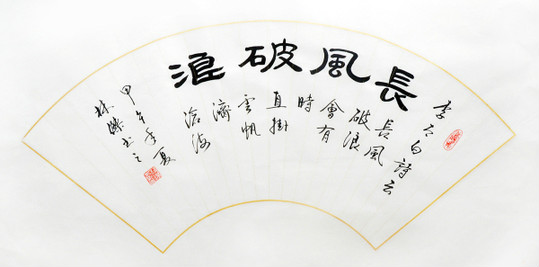 長風破浪
李太白詩云
長風
破浪
會有
時
直掛
雲帆
濟
滄海
甲午年夏
林書之